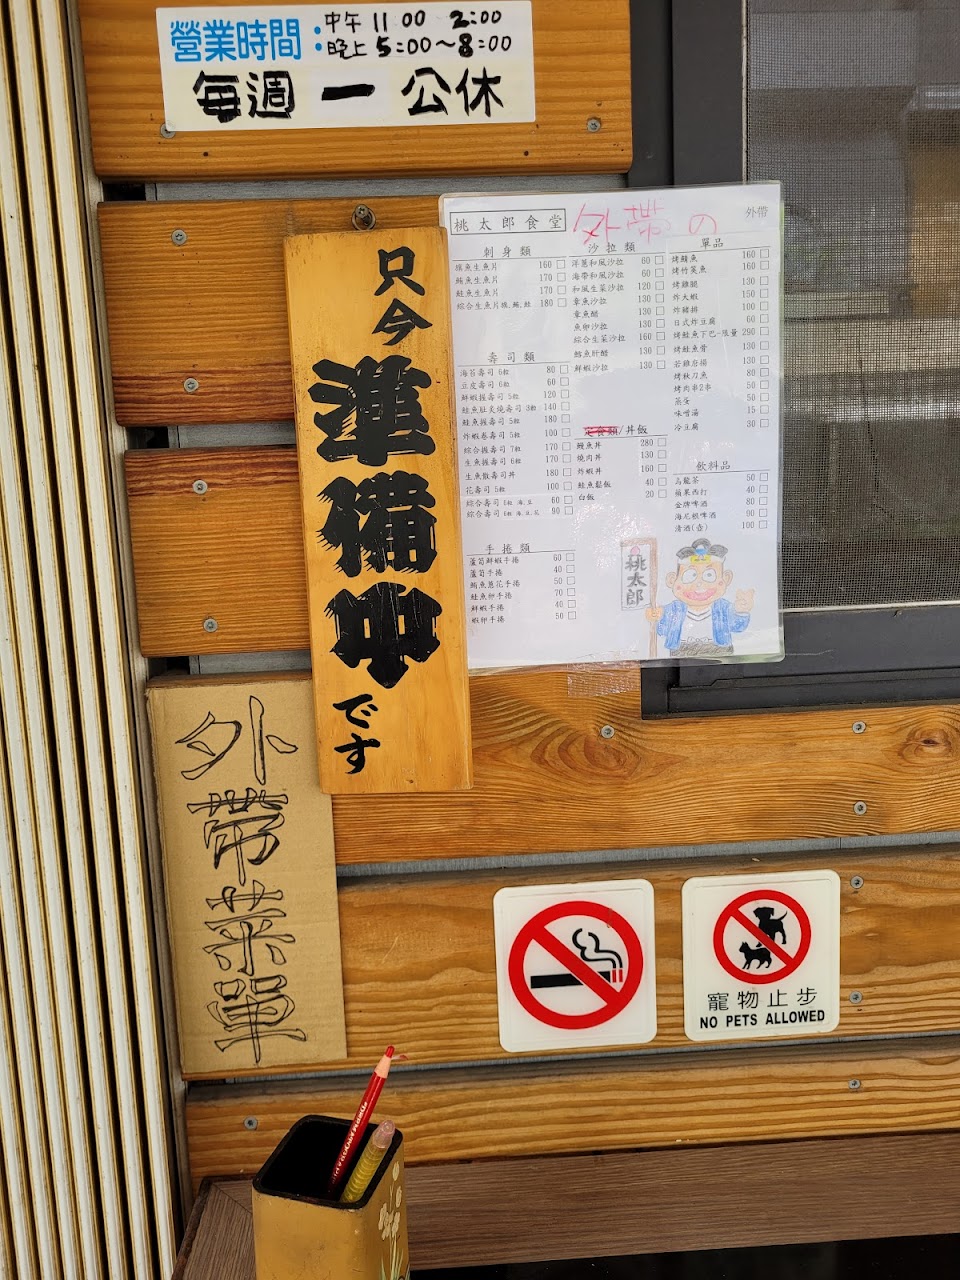 營業時間：
中午 11:00 2:00
晚上 5:00～8:00
每週 一 公休
只今準備中です
桃太郎食堂
外帶の
外帶
刺身類
旗魚生魚片 160
鮪魚生魚片 170
鮭魚生魚片 170
綜合生魚片旗,鮪,鮭 180
壽司類
海苔壽司 6粒 80
豆皮壽司 6粒 60
鮮蝦握壽司 5粒 120
鮭魚肚炙燒壽司 3粒 140
鮭魚握壽司 5粒 180
炸蝦卷壽司 5粒 100
綜合握壽司 7粒 170
生魚握壽司 6粒 170
生魚散壽司丼 180
花壽司 5粒 100
綜合壽司 60
綜合壽司 90
手捲類
蘆筍鮮蝦手捲 60
蘆筍手捲 40
鮪魚蔥花手捲 50
鮭魚卵手捲 70
鮮蝦手捲 40
蝦卵手捲 50
沙拉類
洋蔥和風沙拉 60
海帶和風沙拉 60
和風生菜沙拉 120
章魚沙拉 130
章魚醋 130
魚卵沙拉 130
綜合生菜沙拉 160
鱈魚肝醋 130
鮮蝦沙拉 130
定食類/丼飯
鰻魚丼 280
燒肉丼 130
炸蝦丼 160
鮭魚鬆飯 40
白飯 20
單品
烤鯖魚 160
烤竹筴魚 160
烤雞腿 130
炸大蝦 150
炸豬排 100
日式炸豆腐 60
烤鮭魚下巴-限量 290
烤鮭魚骨 130
若雞唐揚 130
烤秋刀魚 80
烤肉串2串 50
茶蛋 50
味噌湯 15
冷豆腐 30
飲料品
烏龍茶 50
蘋果西打 40
金牌啤酒 80
海尼根啤酒 90
清酒(壺) 100
桃太郎
外帶菜單
寵物止步
NO PETS ALLOWED